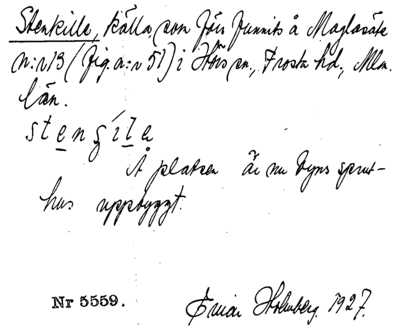 Stenkille, källa, som förr funnits å Maglasäte
n:r 13 (fig. a: v 51) i Hörs sn., Frosta hd., Mlm.
län.
stengile
Å platsen är nu byns sprut-
hus uppbyggt.
Nr 5559.
Einar Holmberg. 1927.